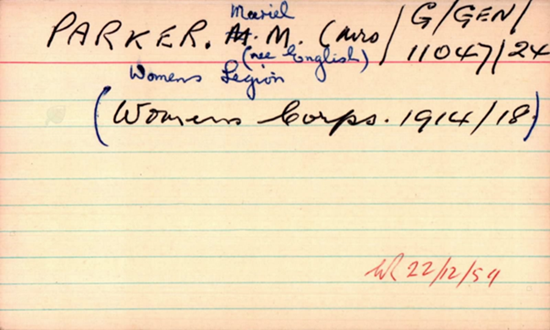 Muriel
PARKER. M. M. (Mrs) G/GEN/
(nee English) 11047/24
Womens Legion
(Womens Corps. 1914/18)
22/12/54